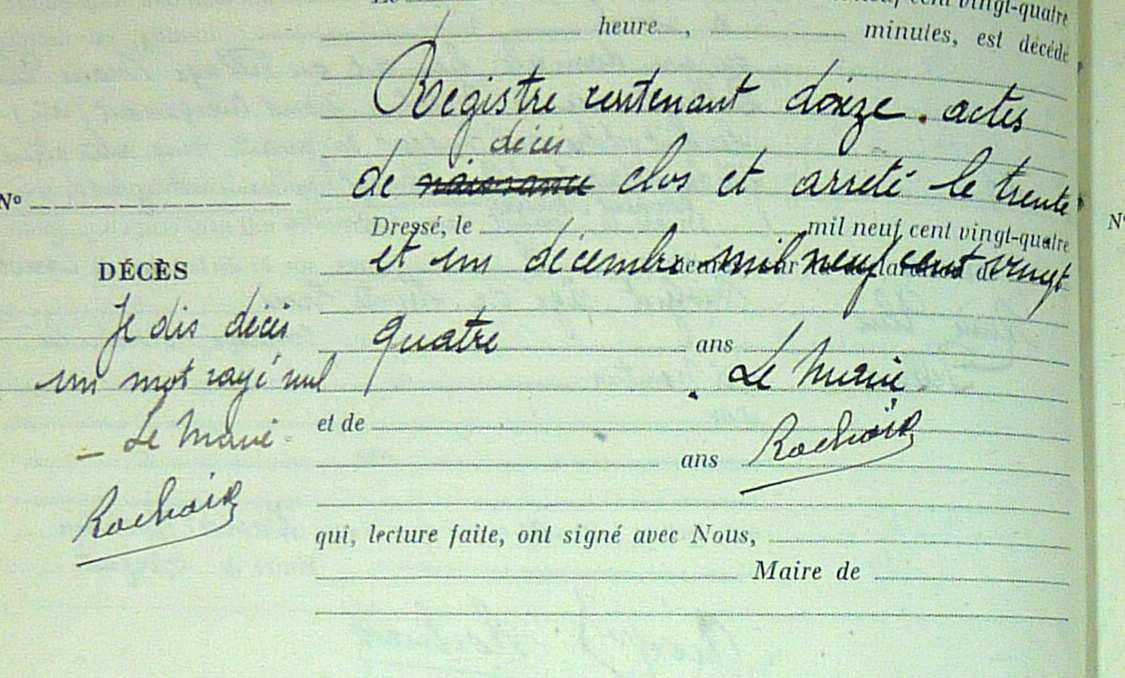 neuf cent vingt-quatre
heure , minutes, est décédé
Registre contenant douze actes
décès
de naissance clos et arreté le trente
Nº
Dressé, le mil neuf cent vingt-quatre
et un décembre mil neuf cent vingt
DÉCÈS
Je dis décès
quatre ans Le Maire
un mot rayé nul
et de
Le Maire
ans Rochaix
Rochaix
qui, lecture faite, ont signé avec Nous,
Maire de